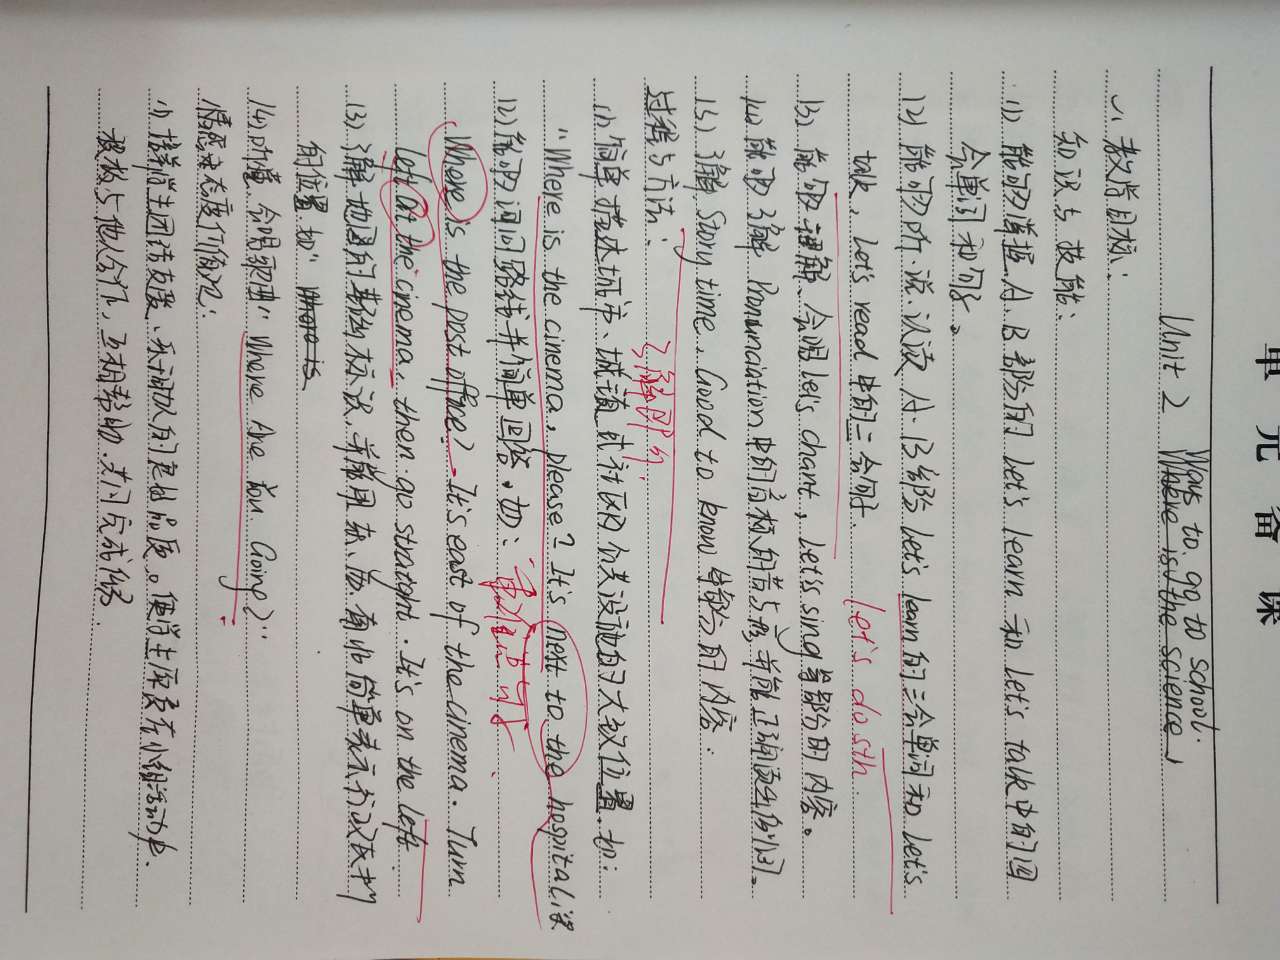 单元备课
Unit 2 Ways to go to school.
Where is the science
一、教学目标:
知识与技能:
(1) 能够掌握A、B部分的 Let's learn 和 Let's talk 中的四
会单词和句子。
(2) 能够听、说、认读A、B部分 Let's learn 的三会单词和 Let's
talk, Let's read 中的三会句子.
Let's do sth
(3) 能够理解、会唱 Let's chant, Let's sing 等部分的内容。
(4) 能够了解 Pronunciation 中的音标的音与形,并能正确读出例词。
(5) 了解 Story time, Good to know 等部分的内容.
了解即可.
过程与方法:
(1) 简单描述城市、城镇或社区公共设施的大致位置.如:
"Where is the cinema, please? It's next to the hospital."
(2) 能够询问路线并简单回答.如:
重难点句子
Where is the post office? It's east of the cinema. Turn
left at the cinema, then go straight. It's on the left.
(3) 了解地图的基础标识,并能用东、西、南、北简单表示
的位置.如" Where is
(4) 听懂、会唱歌曲" Where Are You Going?"
情感态度价值观:
(1) 培养学生团结友爱、乐于助人的意识品质。使学生在小组活动中
积极与他人合作,互相帮助.共同完成任务.